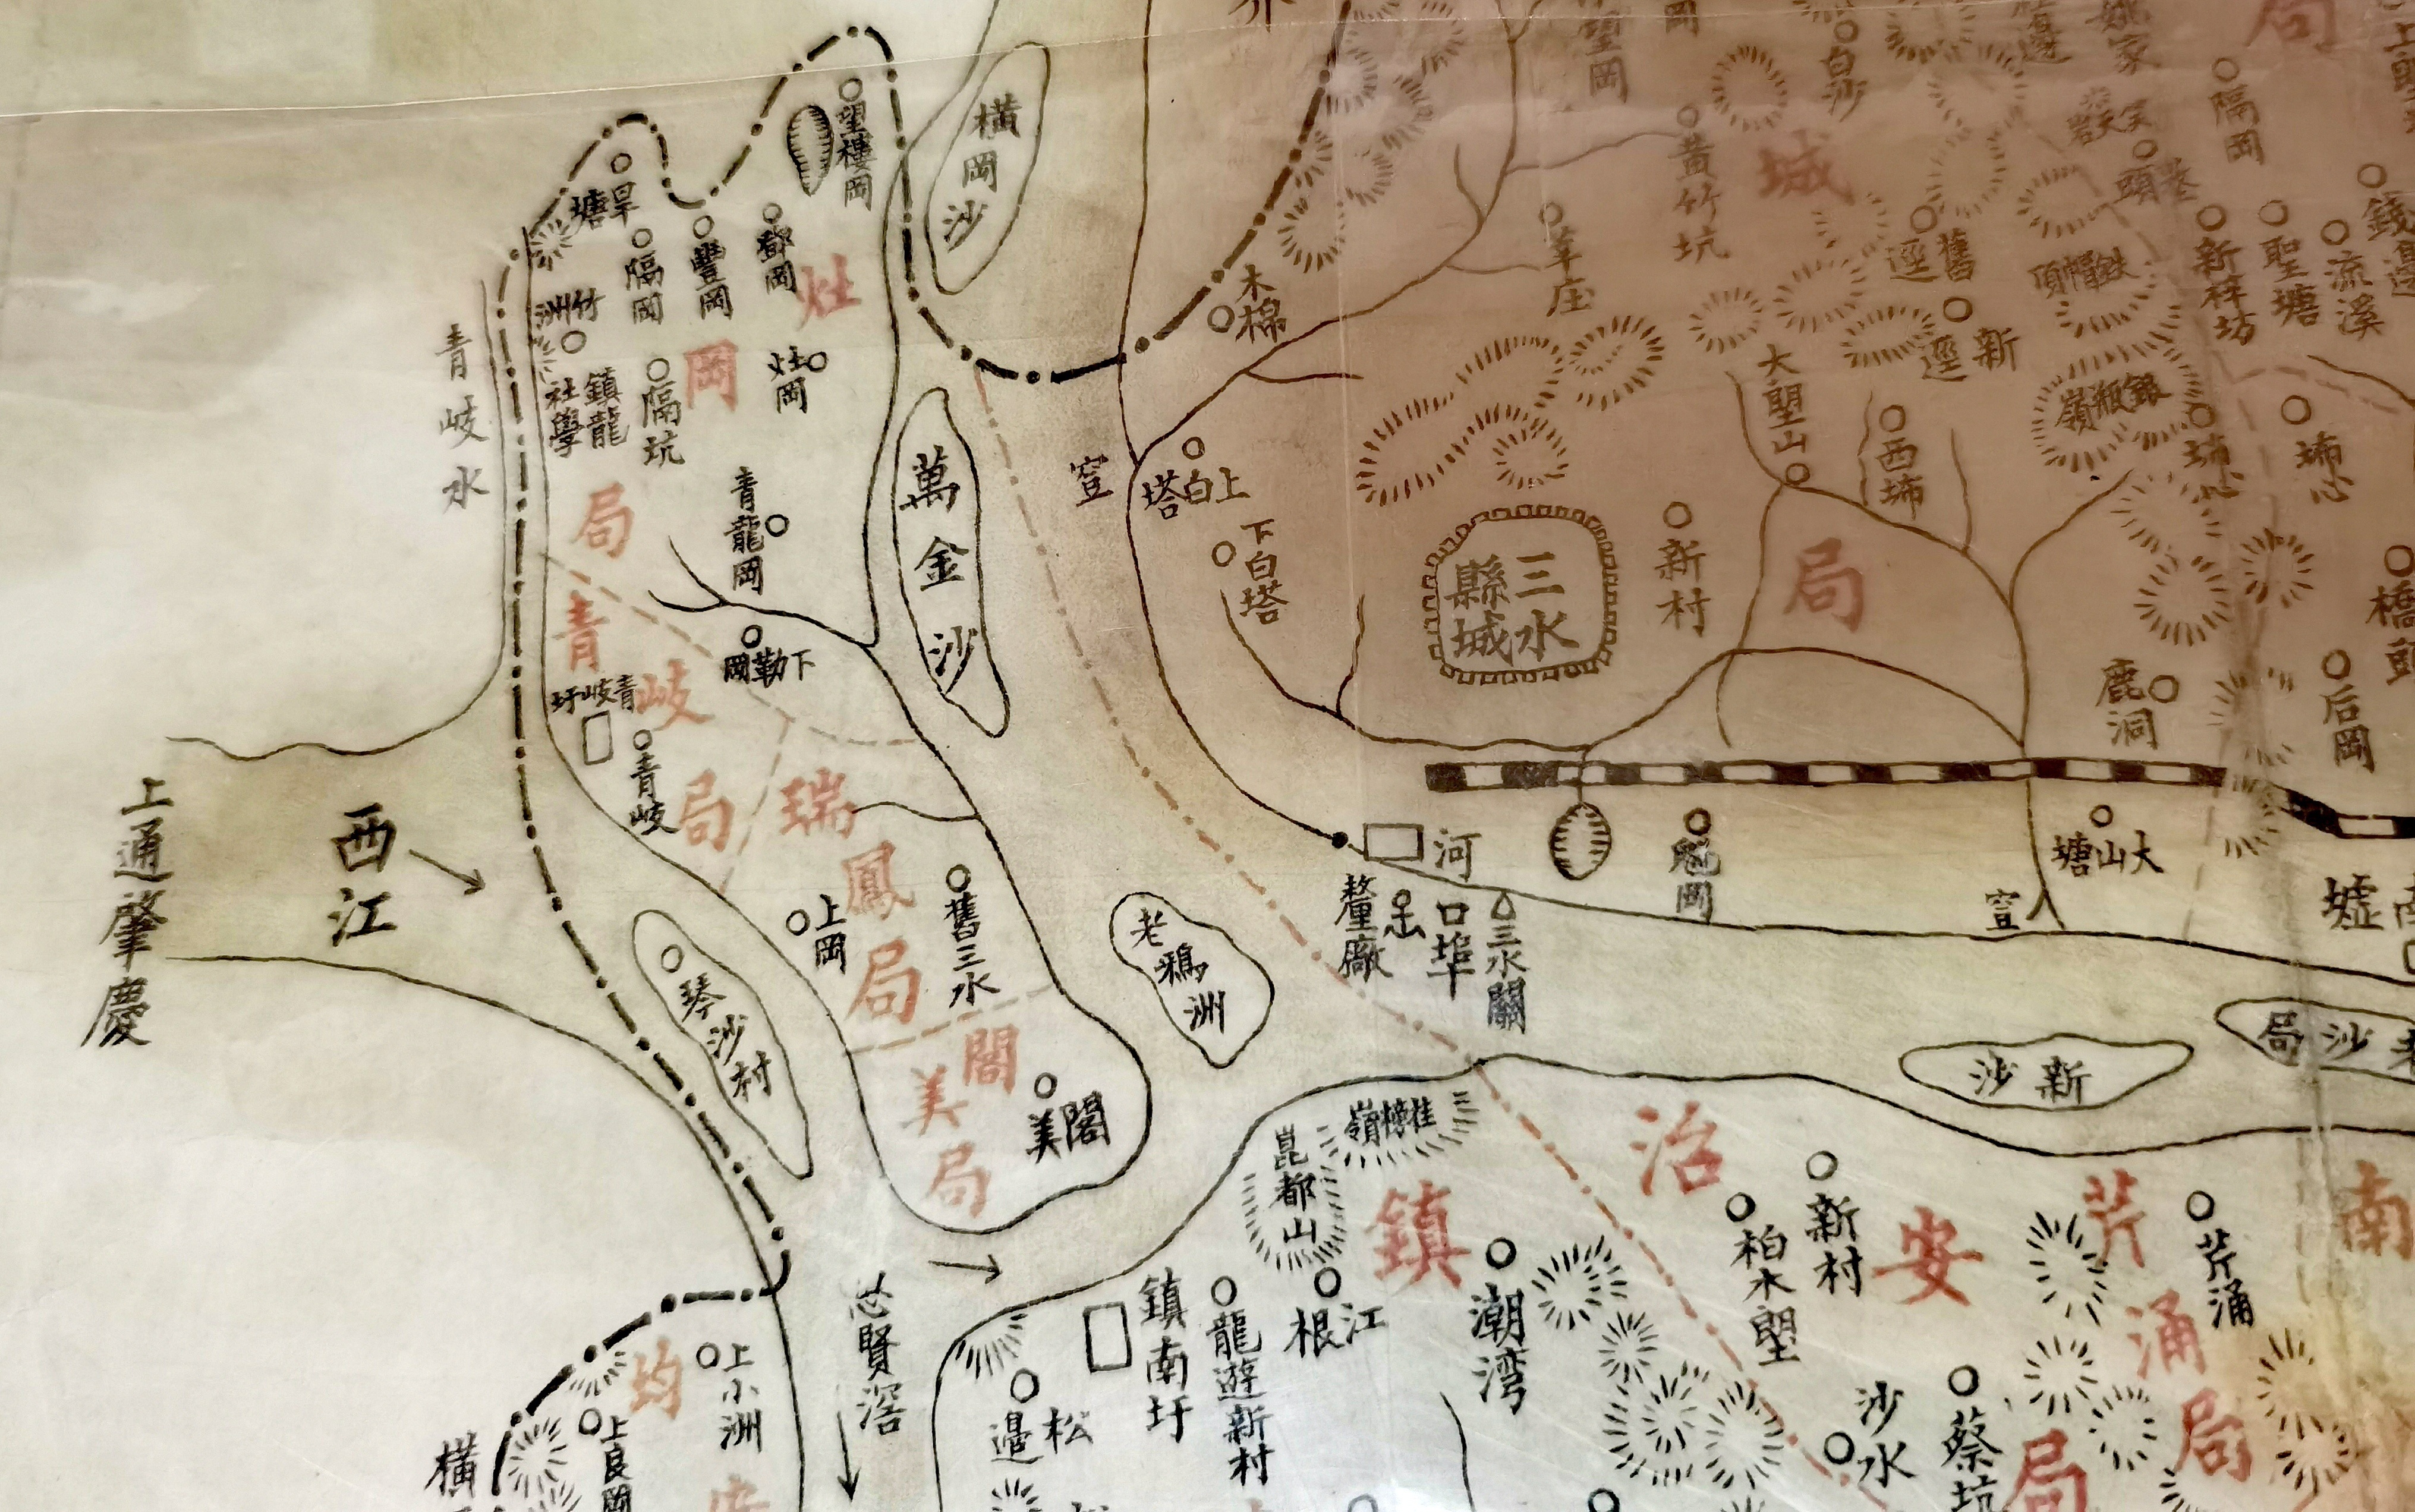 橫岡沙
望樓岡
旱塘
隔岡
豐岡
鄧岡
灶岡局
竹洲
灶岡
鎮龍社學
隔坑
青岐水
青龍岡
萬金沙
下勒岡
青岐局
青岐圩
青岐
瑞鳳局
上岡
舊三水
閣美局
閣美
琴沙村
老鴉洲
西江
上通肇慶
木棉
上白塔
下白塔
三水縣城
新村
黃竹坑
白沙
隔岡
城
局
舊逕
新逕
大塱山
西㘵
鐵帽頂
銀瓶嶺
聖塘
流溪
鹿洞
后岡
橋頭
河口埠
釐廠
三水關
魁岡
大山塘
墟
新沙
沙局
崑都山
鎮
治安
局
江根
潮湾
新村
柏木塱
芹涌局
芹涌
南
沙水
蔡坑
鎮南圩
龍遊新村
松邊
思賢滘
均安
上小洲
上良岡
橫